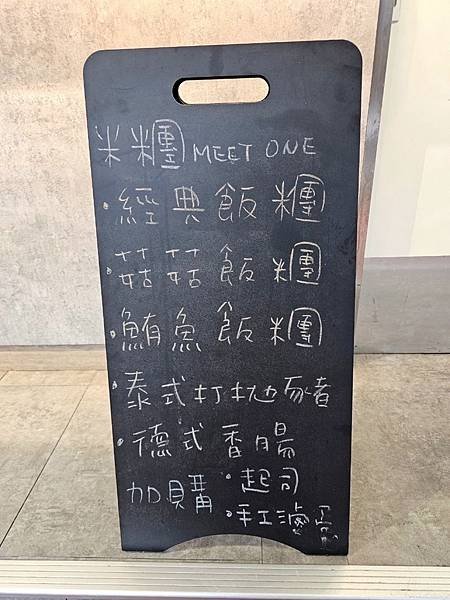 米糰 MEET ONE
・經典飯糰
・菇菇飯糰
・鮪魚飯糰
・泰式打拋豬
・德式香腸
加購・起司
・紅滷蛋